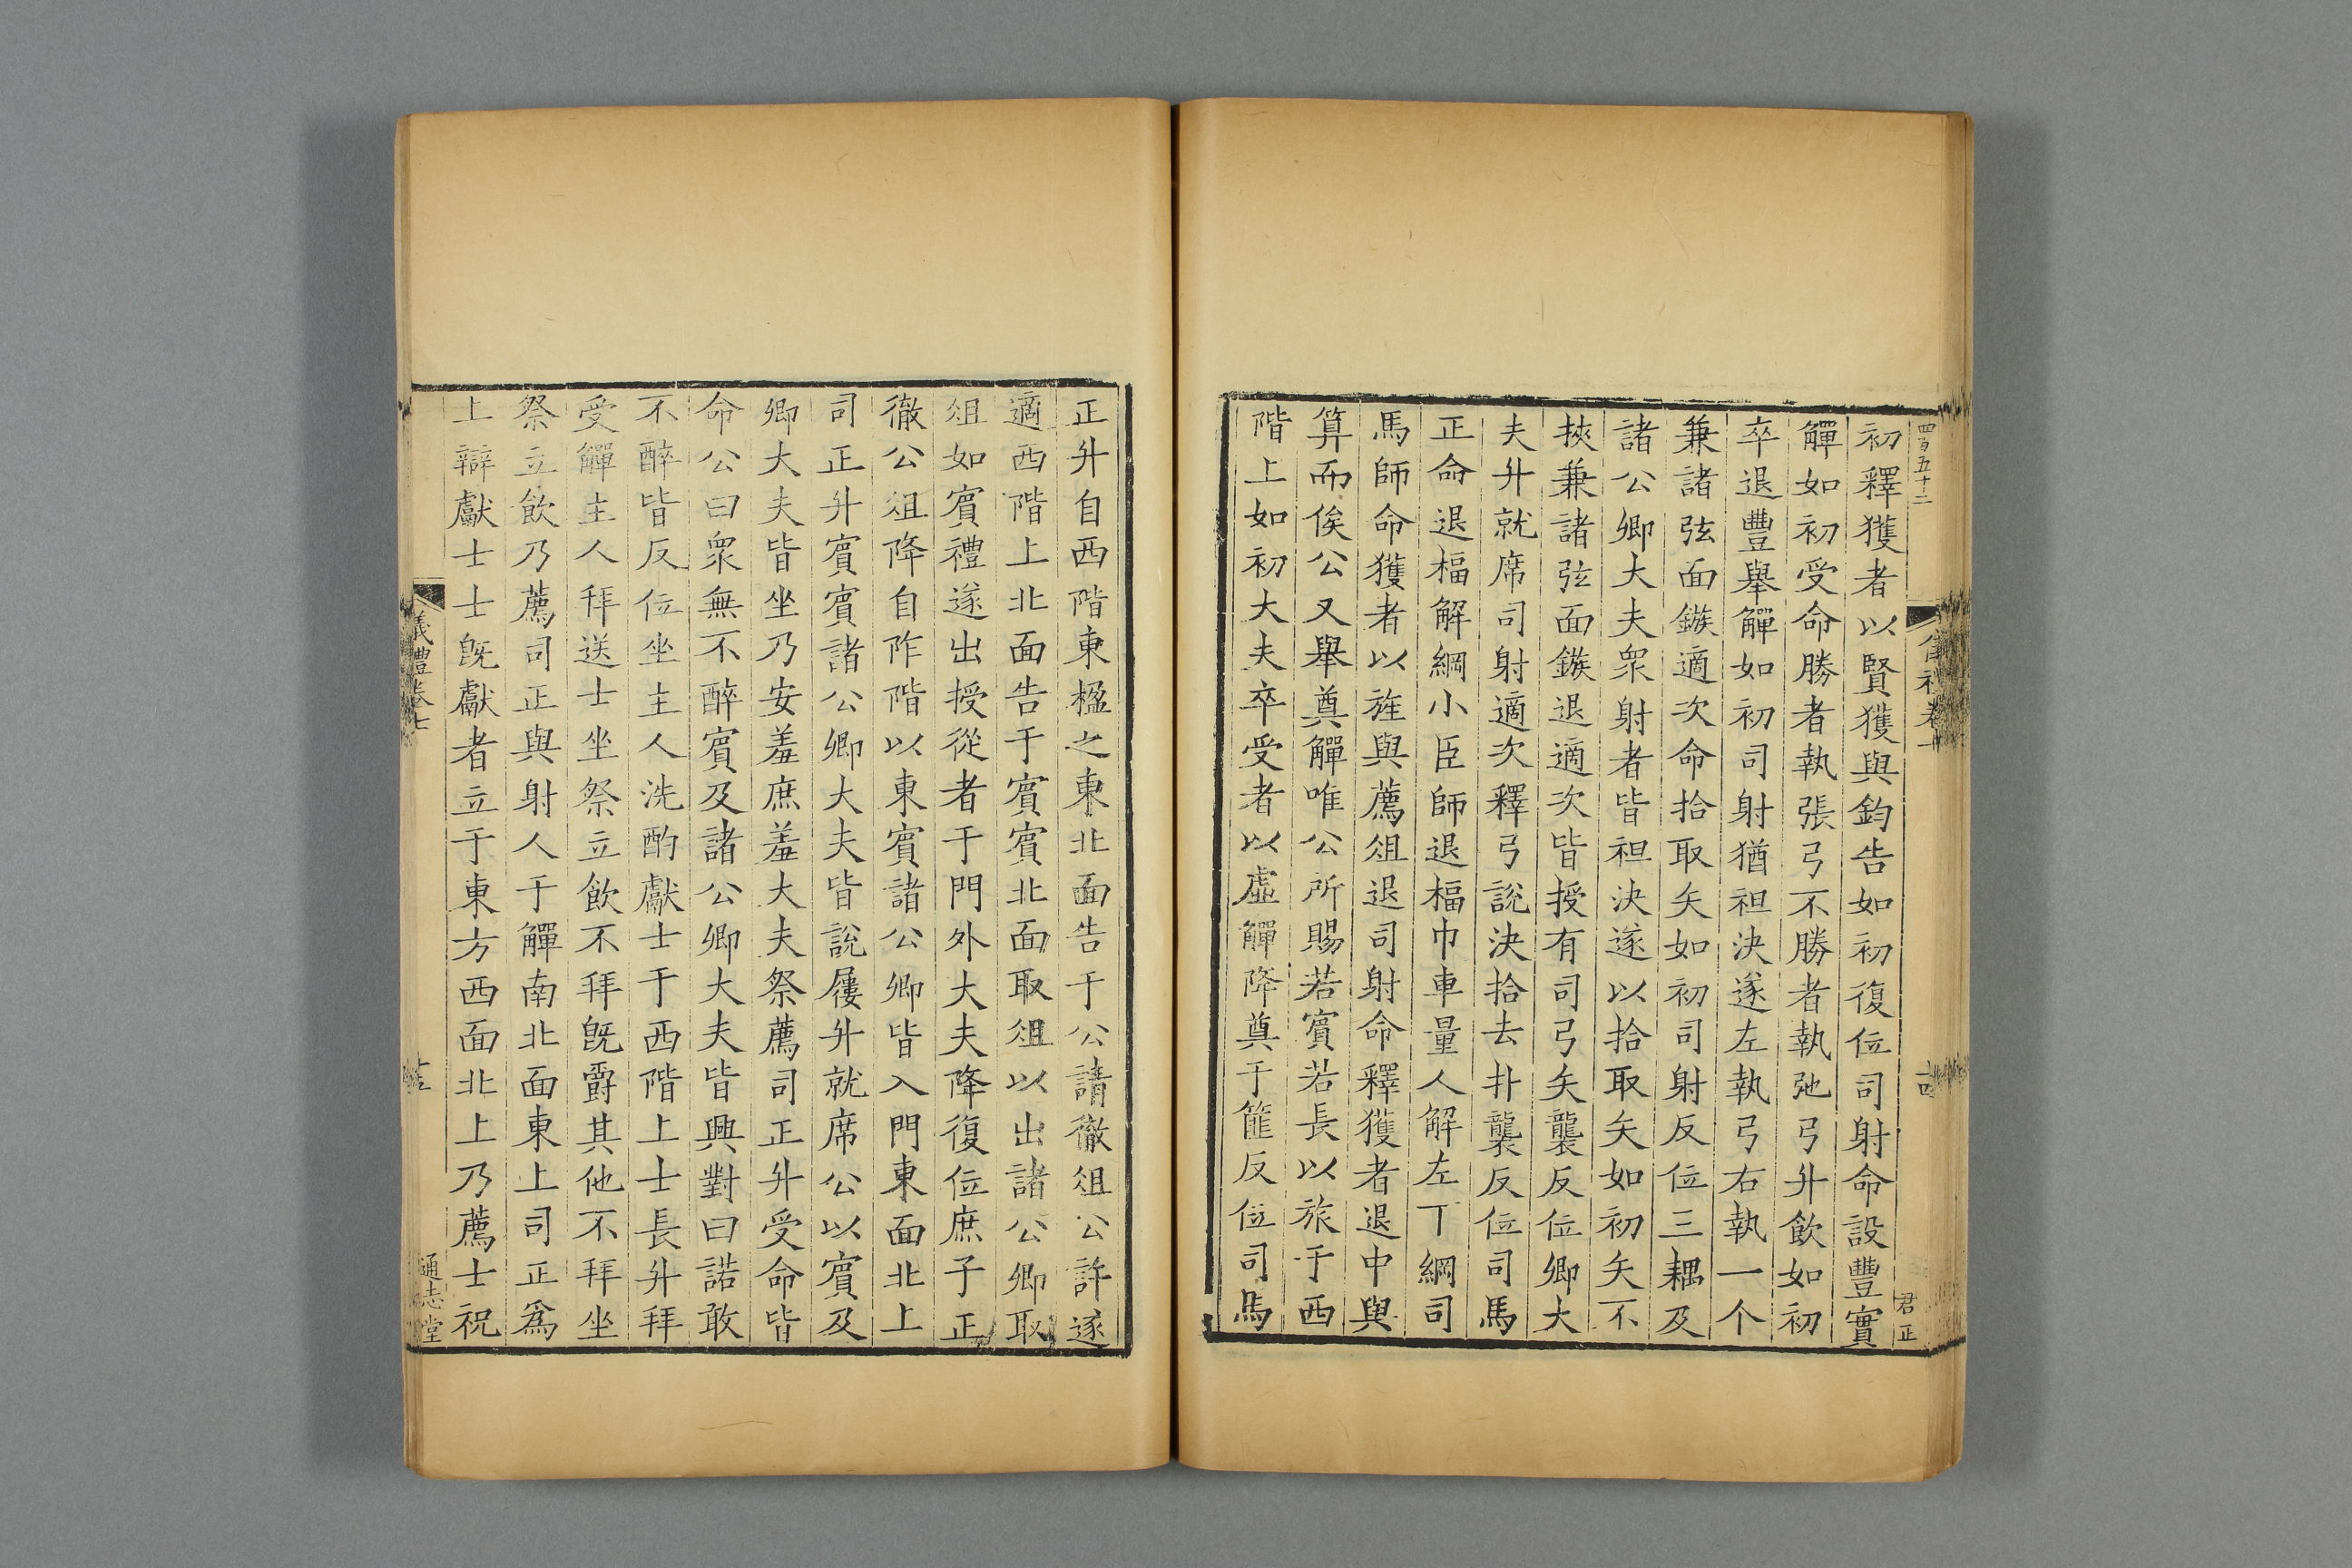 四百五十二
初釋獲者以賢獲與鈞告如初復位司射命設豐實
觶如初受命勝者執張弓不勝者執弛弓升飲如初
卒退豐舉觶如初司射猶袒決遂左執弓右執一个
兼諸弦面鏃適次命拾取矢如初司射反位三耦及
諸公卿大夫衆射者皆袒決遂以拾取矢如初矢不
挾兼諸弦面鏃退適次皆授有司弓矢襲反位卿大
夫升就席司射適次釋弓說決拾去扑襲反位司馬
正命退楅解綱小臣師退楅巾車量人解左下綱司
馬師命獲者以旌與薦俎退司射命釋獲者退中與
算而俟公又舉奠觶唯公所賜若賓若長以旅于西
階上如初大夫卒受者以虛觶降奠于篚反位司馬
君正
正升自西階東楹之東北面告于公請徹俎公許遂
適西階上北面告于賓賓北面取俎以出諸公卿取
俎如賓禮遂出授從者于門外大夫降復位庶子正
徹公俎降自阼階以東賓諸公卿皆入門東面北上
司正升賓賓諸公卿大夫皆說屨升就席公以賓及
卿大夫皆坐乃安羞庶羞大夫祭薦司正升受命皆
命公曰衆無不醉賓及諸公卿大夫皆興對曰諾敢
不醉皆反位坐主人洗酌獻士于西階上士長升拜
受觶主人拜送士坐祭立飲不拜既爵其他不拜坐
祭立飲乃薦司正與射人于觶南北面東上司正爲
上辯獻士士既獻者立于東方西面北上乃薦士祝
儀禮卷七
通志堂